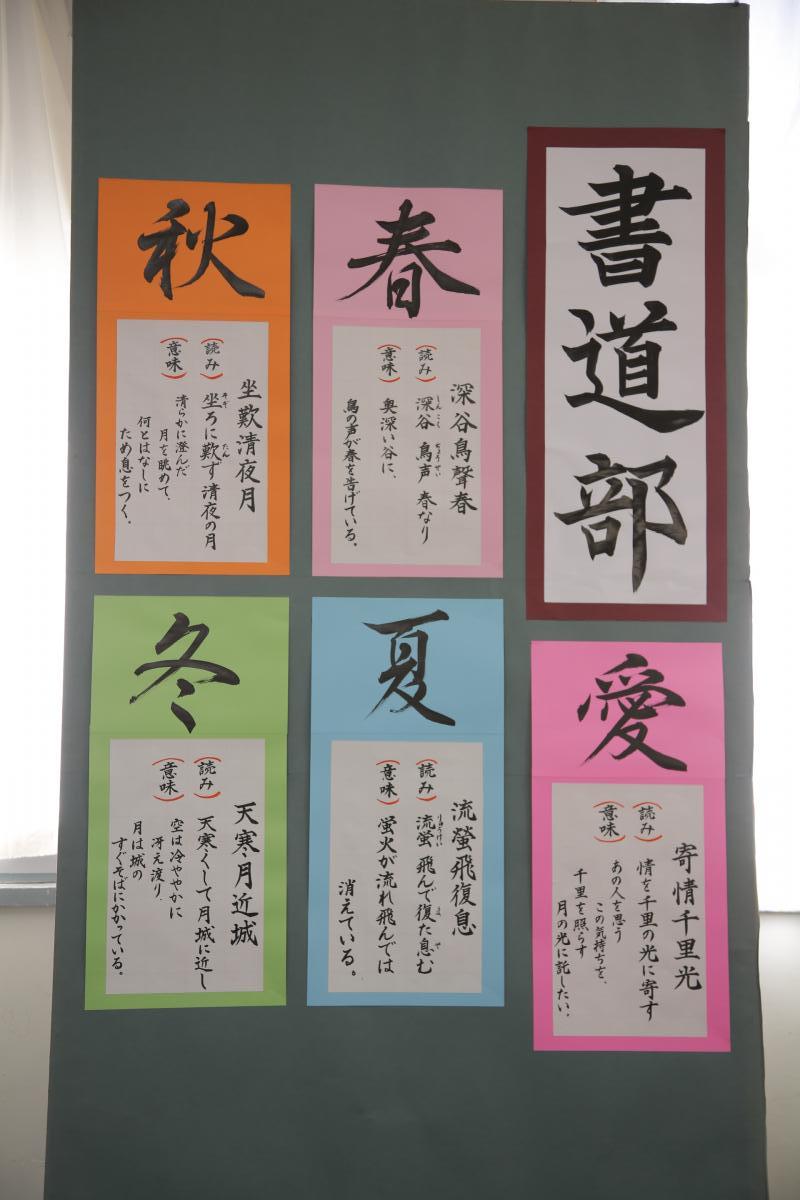 書道部
愛
寄情千里光
(読み)
情を千里の光に寄す
(意味)
あの人を思う
この気持ちを、
千里を照らす
月の光に託したい。
春
深谷鳥聲春
(読み)
深谷 鳥声 春なり
しんこく ちょうせい
(意味)
奥深い谷に、
鳥の声が春を告げている。
夏
流螢飛復息
(読み)
流螢 飛んで復た息む
りゅうけい ま や
(意味)
蛍火が流れ飛んでは
消えている。
秋
坐歎清夜月
(読み)
坐ろに歎ず清夜の月
そぞ たん
(意味)
清らかに澄んだ
月を眺めて、
何とはなしに
ため息をつく。
冬
天寒月近城
(読み)
天寒くして月城に近し
(意味)
空は冷ややかに
冴え渡り、
月は城の
すぐそばにかかっている。